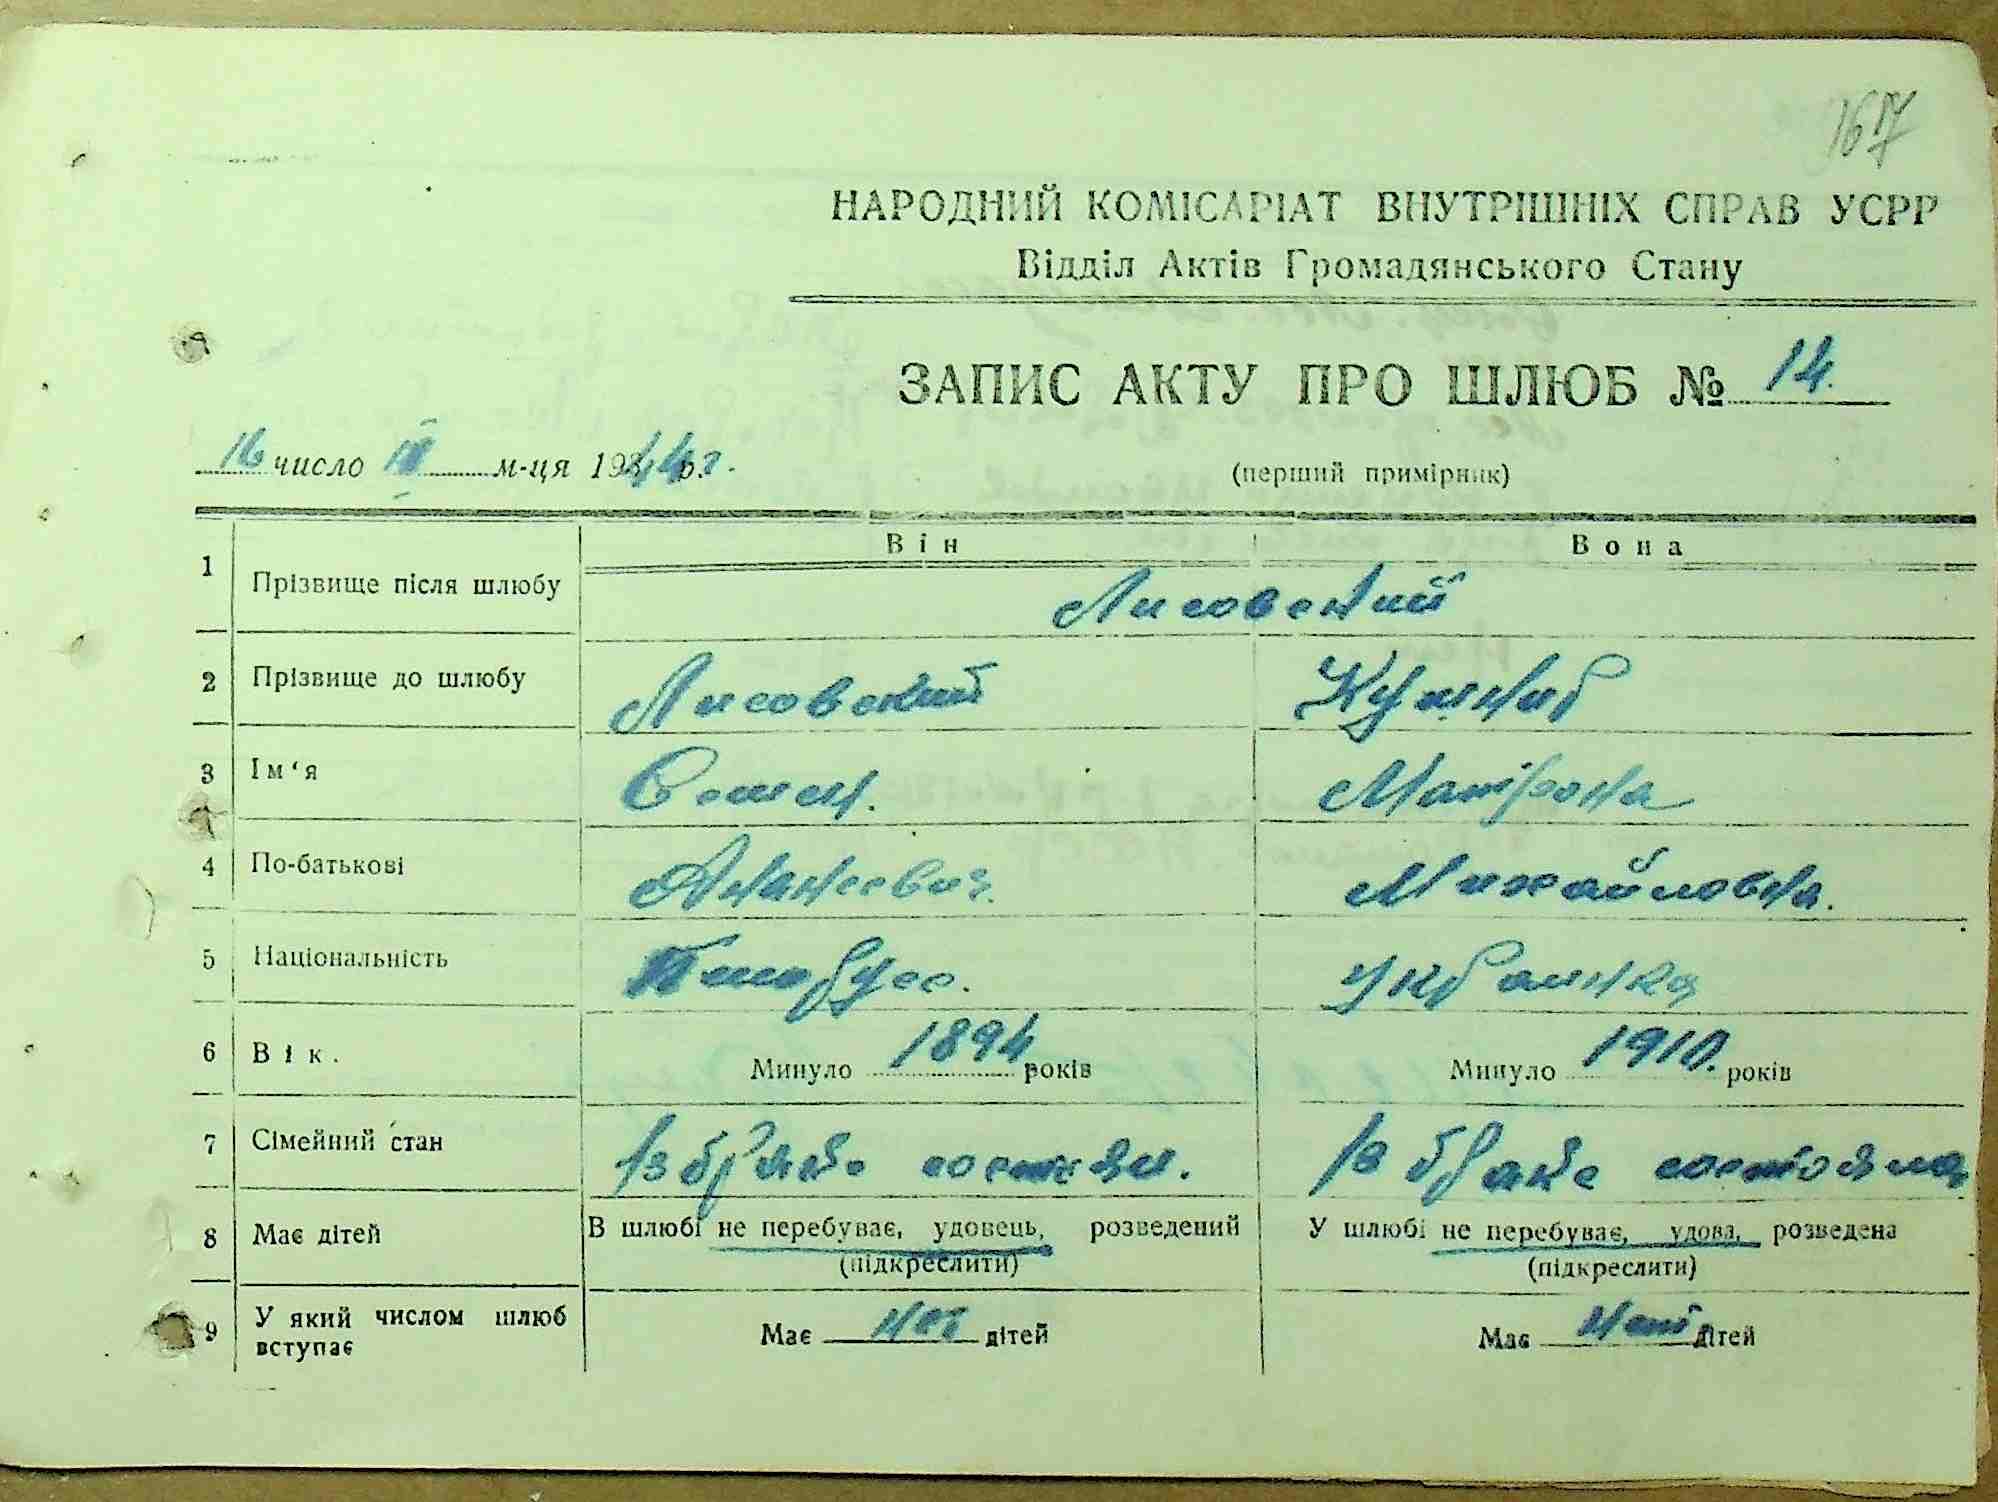 167
НАРОДНИЙ КОМІСАРІАТ ВНУТРІШНІХ СПРАВ УСРР
Відділ Актів Громадянського Стану
ЗАПИС АКТУ ПРО ШЛЮБ № 14.
16 число III м-ця 1944 р.
(перший примірник)
Він Вона
1 Прізвище після шлюбу Лисовский
2 Прізвище до шлюбу Лисовский Кушнир
3 Ім‘я Семен. Матрона
4 По-батькові Ананьевич. Михайловна.
5 Національність Украинка
6 Вік. Минуло 1894 років Минуло 1910. років
7 Сімейний стан В браке состоял. В браке состояла
8 Має дітей В шлюбі не перебуває, удовець, розведений У шлюбі не перебуває, удова, розведена
(підкреслити) (підкреслити)
9 У який числом шлюб вступає Має нет дітей Має нет дітей